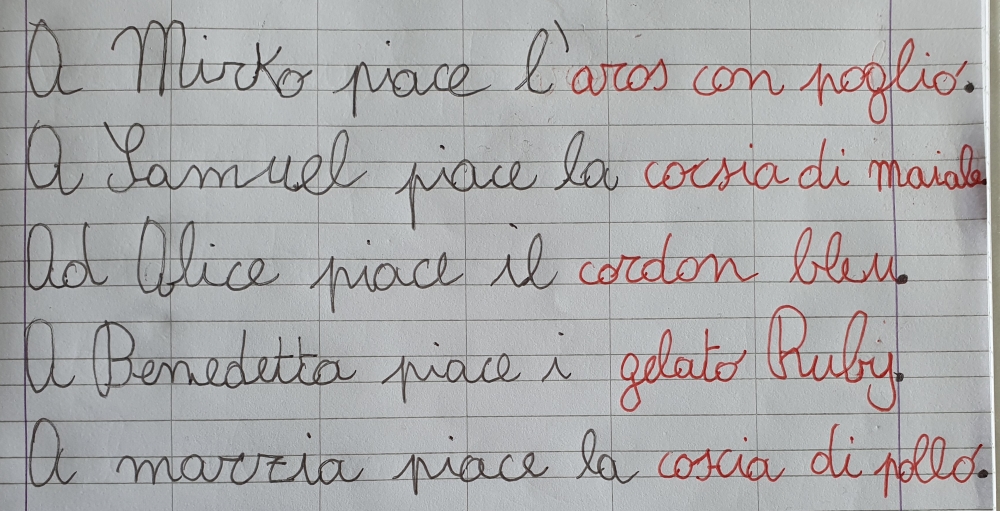 A Mirko piace l'aros con poglio.
A Samuel piace la cocsia di maiale
Ad Alice piace il cordon bleu.
A Benedetta piace i gelato Ruby.
A marzia piace la coscia di pollo.